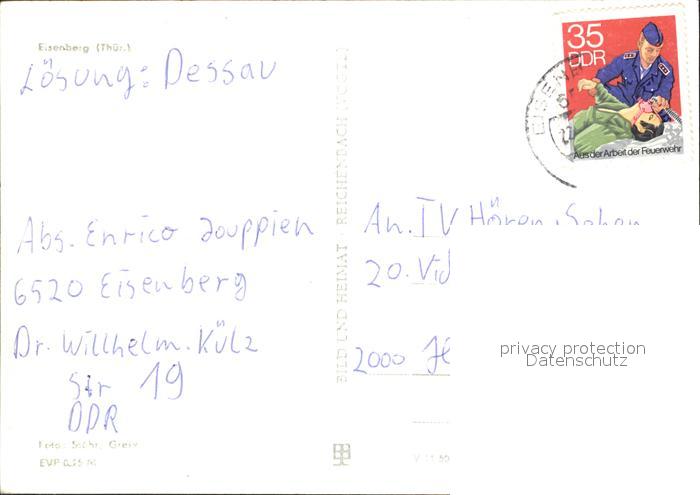 Eisenberg (Thür.)
Lösung: Dessau
35
DDR
Aus der Arbeit der Feuerwehr
BILD UND HEIMAT · REICHENBACH (VOGTL)
An. IV Hören. Sehen
20. Vid
2000
Abs. Enrico Jouppien
6520 Eisenberg
Dr. Willhelm. Külz
Str 19
DDR
privacy protection
Datenschutz
Foto: Greiz
EVP 0,25 M
V 11 50